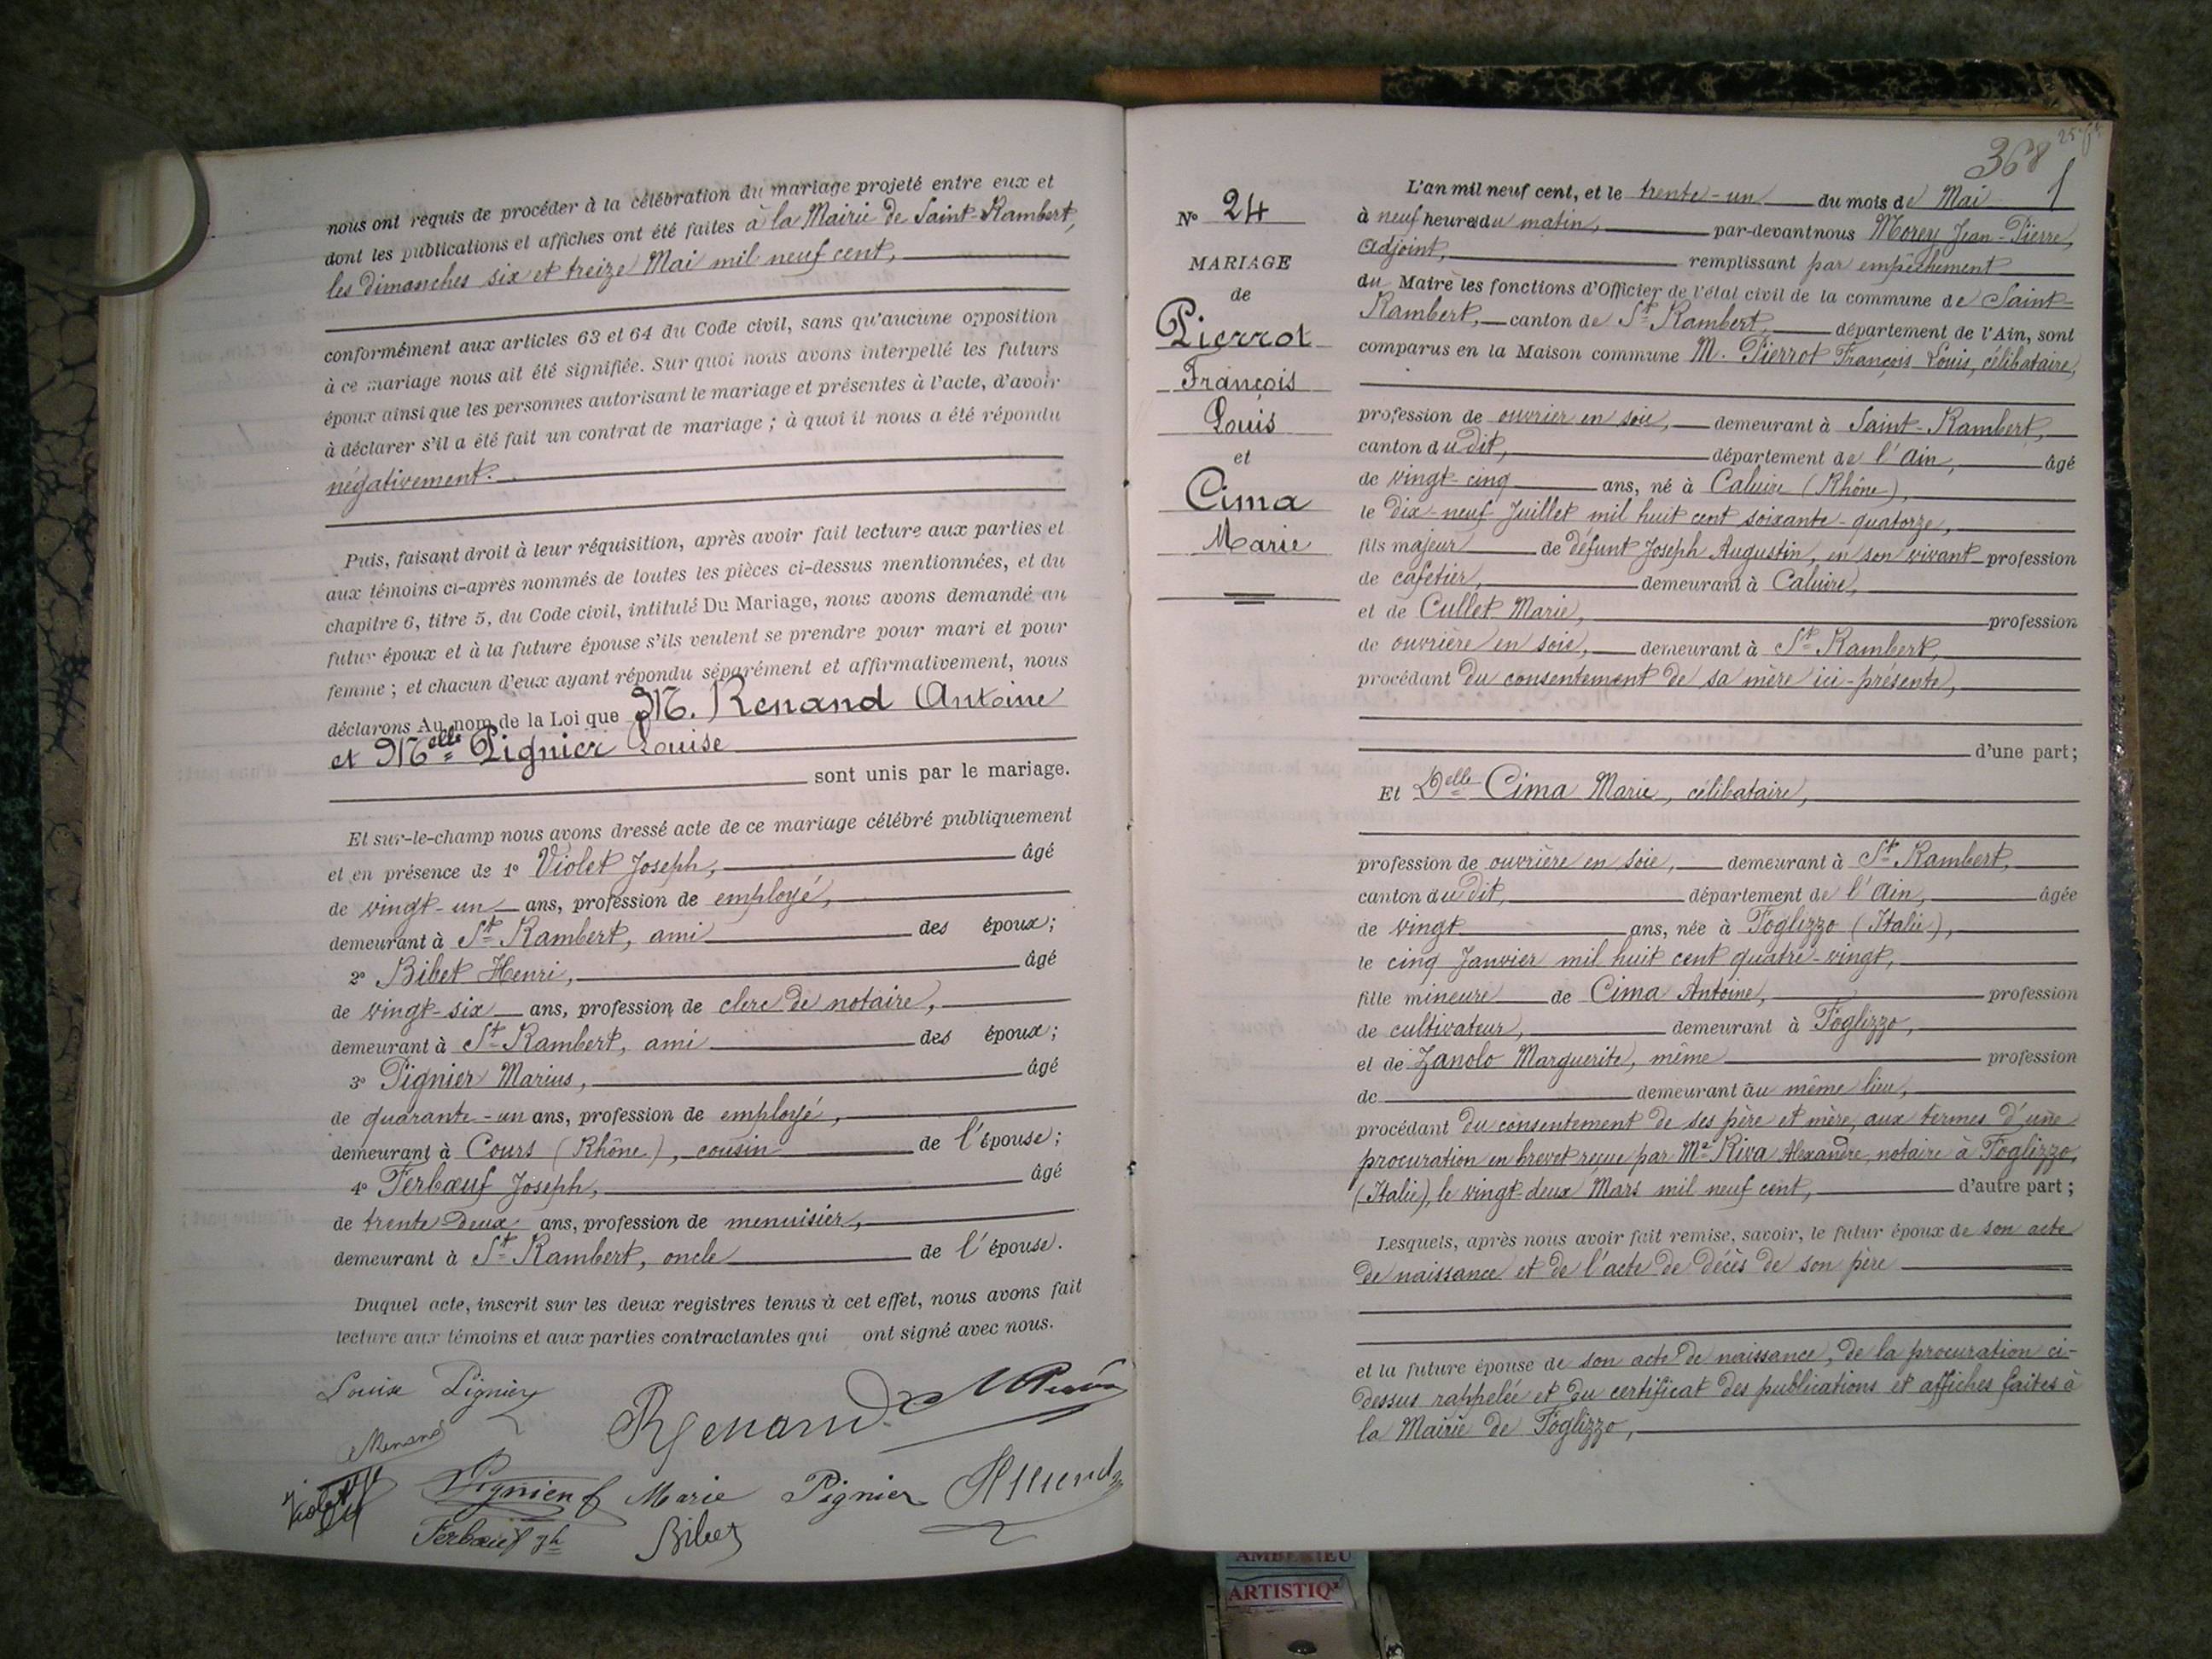 nous ont requis de procéder à la célébration du mariage projeté entre eux et
dont les publications et affiches ont été faites à la Mairie de Saint-Rambert,
les dimanches six et treize Mai mil neuf cent,
conformément aux articles 63 et 64 du Code civil, sans qu'aucune opposition
à ce mariage nous ait été signifiée. Sur quoi nous avons interpellé les futurs
époux ainsi que les personnes autorisant le mariage et présentes à l'acte, d'avoir
à déclarer s'il a été fait un contrat de mariage ; à quoi il nous a été répondu
négativement.
Puis, faisant droit à leur réquisition, après avoir fait lecture aux parties et
aux témoins ci-après nommés de toutes les pièces ci-dessus mentionnées, et du
chapitre 6, titre 5, du Code civil, intitulé Du Mariage, nous avons demandé au
futur époux et à la future épouse s'ils veulent se prendre pour mari et pour
femme ; et chacun d'eux ayant répondu séparément et affirmativement, nous
déclarons Au nom de la Loi que M. Renand Antoine
et Melle Pignier Louise
sont unis par le mariage.
Et sur-le-champ nous avons dressé acte de ce mariage célébré publiquement
et en présence de 1º Violet Joseph, âgé
de vingt-un ans, profession de employé,
demeurant à St Rambert, ami des époux ;
2º Bibet Henri, âgé
de vingt-six ans, profession de clerc de notaire,
demeurant à St Rambert, ami des époux ;
3º Pignier Marius, âgé
de quarante-un ans, profession de employé,
demeurant à Cours (Rhône), cousin de l'épouse ;
4º Ferbœuf Joseph, âgé
de trente-deux ans, profession de menuisier,
demeurant à St Rambert, oncle de l'épouse.
Duquel acte, inscrit sur les deux registres tenus à cet effet, nous avons fait
lecture aux témoins et aux parties contractantes qui ont signé avec nous.
Louise Pignier
Renand
Pignier
Marie Pignier
Violet
Ferbœuf Jh
Bibet
368
Nº 24
MARIAGE
de
Pierrot
François
Louis
et
Cima
Marie
L'an mil neuf cent, et le trente-un du mois de Mai
à neuf heures du matin, par-devant nous Morey Jean-Pierre,
Adjoint, remplissant par empêchement
du Maire les fonctions d'Officier de l'état civil de la commune de Saint-
Rambert, canton de St Rambert, département de l'Ain, sont
comparus en la Maison commune M. Pierrot François Louis, célibataire,
profession de ouvrier en soie, demeurant à Saint-Rambert,
canton du dit, département de l'Ain, âgé
de vingt-cinq ans, né à Caluire (Rhône),
le dix-neuf Juillet mil huit cent soixante-quatorze,
fils majeur de défunt Joseph Augustin, en son vivant profession
de cafetier, demeurant à Caluire,
et de Cullet Marie, profession
de ouvrière en soie, demeurant à St Rambert,
procédant du consentement de sa mère ici-présente,
d'une part ;
Et Delle Cima Marie, célibataire,
profession de ouvrière en soie, demeurant à St Rambert,
canton du dit, département de l'Ain, âgée
de vingt ans, née à Foglizzo (Italie),
le cinq Janvier mil huit cent quatre-vingt,
fille mineure de Cima Antoine, profession
de cultivateur, demeurant à Foglizzo,
et de Zanolo Marguerite, même profession
de demeurant au même lieu,
procédant du consentement de ses père et mère, aux termes d'une
procuration en brevet reçue par Me Riva Alexandre, notaire à Foglizzo,
(Italie), le vingt-deux Mars mil neuf cent, d'autre part ;
Lesquels, après nous avoir fait remise, savoir, le futur époux de son acte
de naissance et de l'acte de décès de son père
et la future épouse de son acte de naissance, de la procuration ci-
dessus rappelée et du certificat des publications et affiches faites à
la Mairie de Foglizzo,
ARTISTIQ